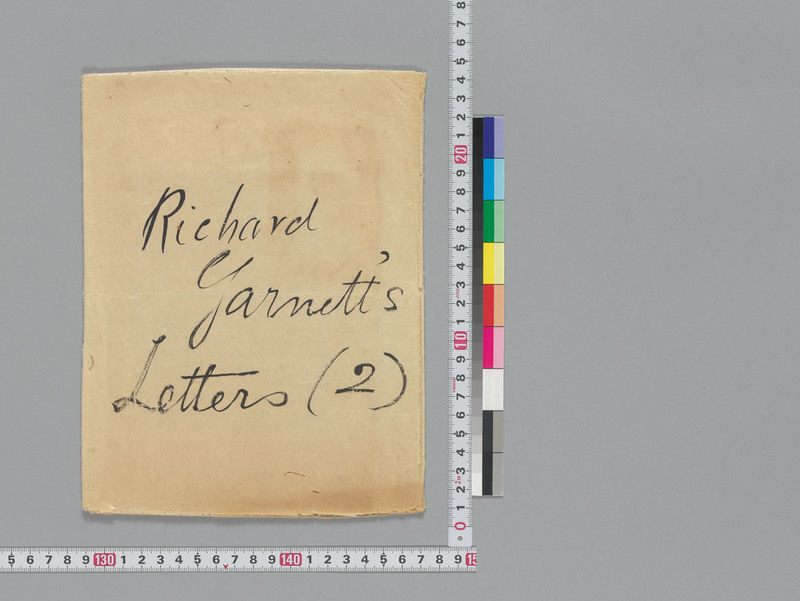 Richard
Garnett's
Letters (2)